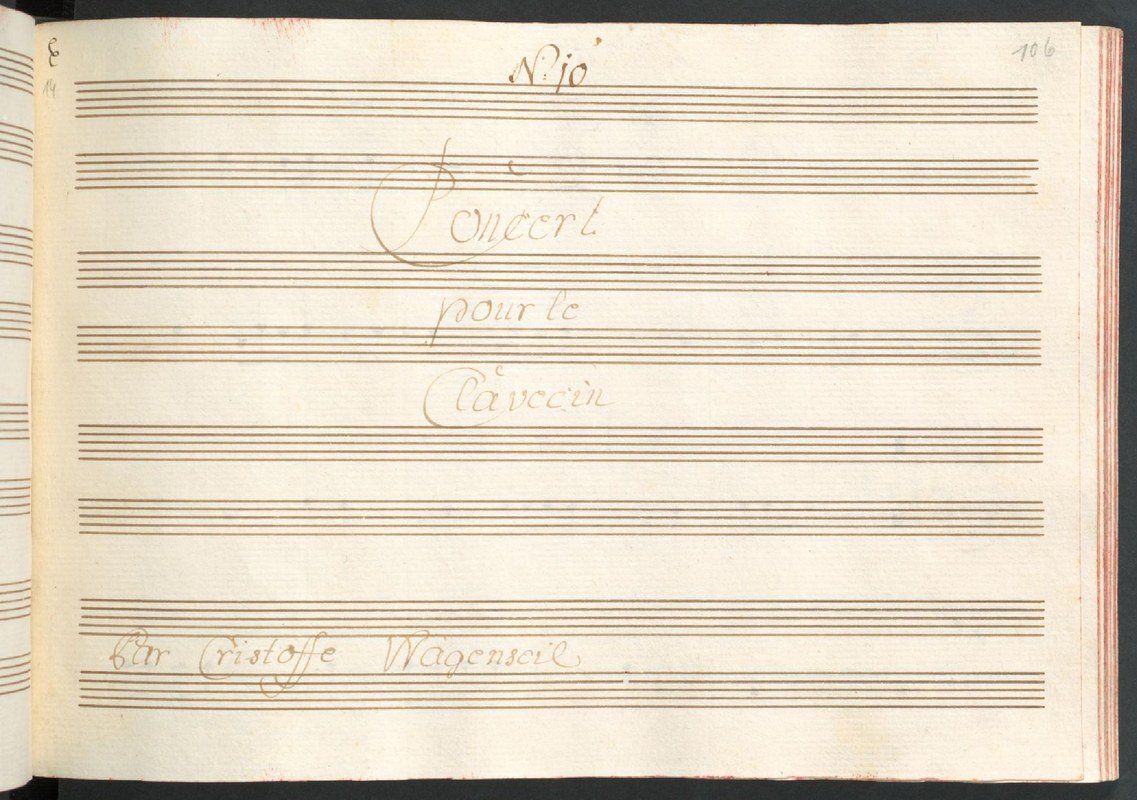 No 10
106
14
Concert
pour le
Clavecin
Par Cristoffe Wagenseil